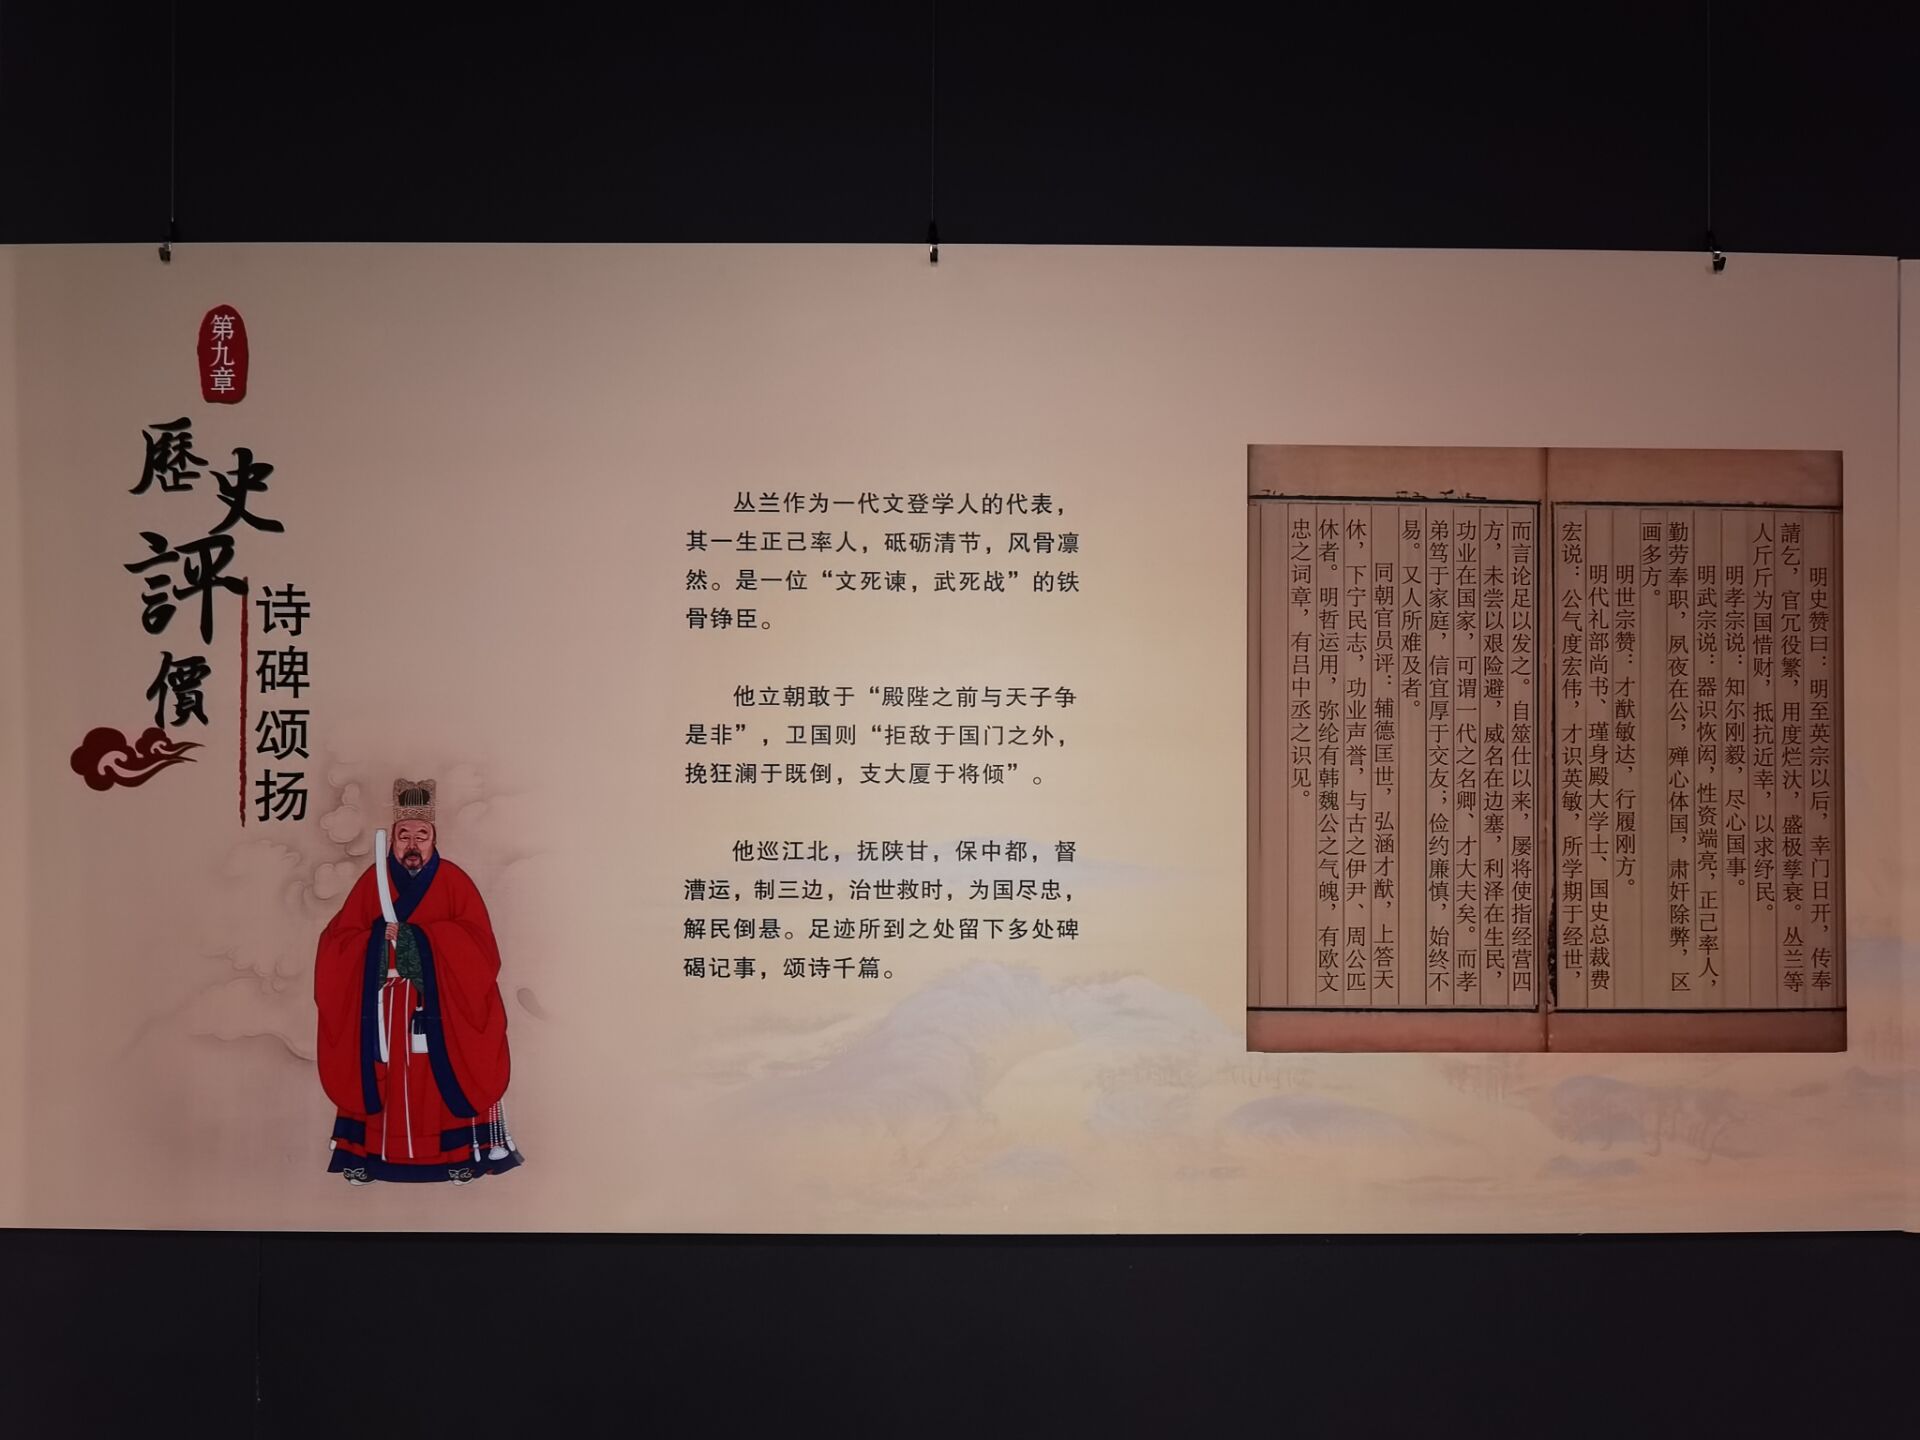 第九章
歷史評價
诗碑颂扬
丛兰作为一代文登学人的代表，
其一生正己率人，砥砺清节，风骨凛
然。是一位“文死谏，武死战”的铁
骨铮臣。
他立朝敢于“殿陛之前与天子争
是非”，卫国则“拒敌于国门之外，
挽狂澜于既倒，支大厦于将倾”。
他巡江北，抚陕甘，保中都，督
漕运，制三边，治世救时，为国尽忠，
解民倒悬。足迹所到之处留下多处碑
碣记事，颂诗千篇。
明史赞曰：明至英宗以后，幸门日开，传奉
請乞，官冗役繁，用度烂汰，盛极孳衰。丛兰等
人斤斤为国惜财，抵抗近幸，以求纾民。
明孝宗说：知尔刚毅，尽心国事。
明武宗说：器识恢闳，性资端亮，正己率人，
勤劳奉职，夙夜在公，殚心体国，肃奸除弊，区
画多方。
明世宗赞：才猷敏达，行履刚方。
明代礼部尚书、瑾身殿大学士、国史总裁费
宏说：公气度宏伟，才识英敏，所学期于经世，
而言论足以发之。自筮仕以来，屡将使指经营四
方，未尝以艰险避，威名在边塞，利泽在生民，
功业在国家，可谓一代之名卿、才大夫矣。而孝
弟笃于家庭，信宜厚于交友；俭约廉慎，始终不
易。又人所难及者。
同朝官员评：辅德匡世，弘涵才猷，上答天
休，下宁民志，功业声誉，与古之伊尹、周公匹
休者。明哲运用，弥纶有韩魏公之气魄，有欧文
忠之词章，有吕中丞之识见。